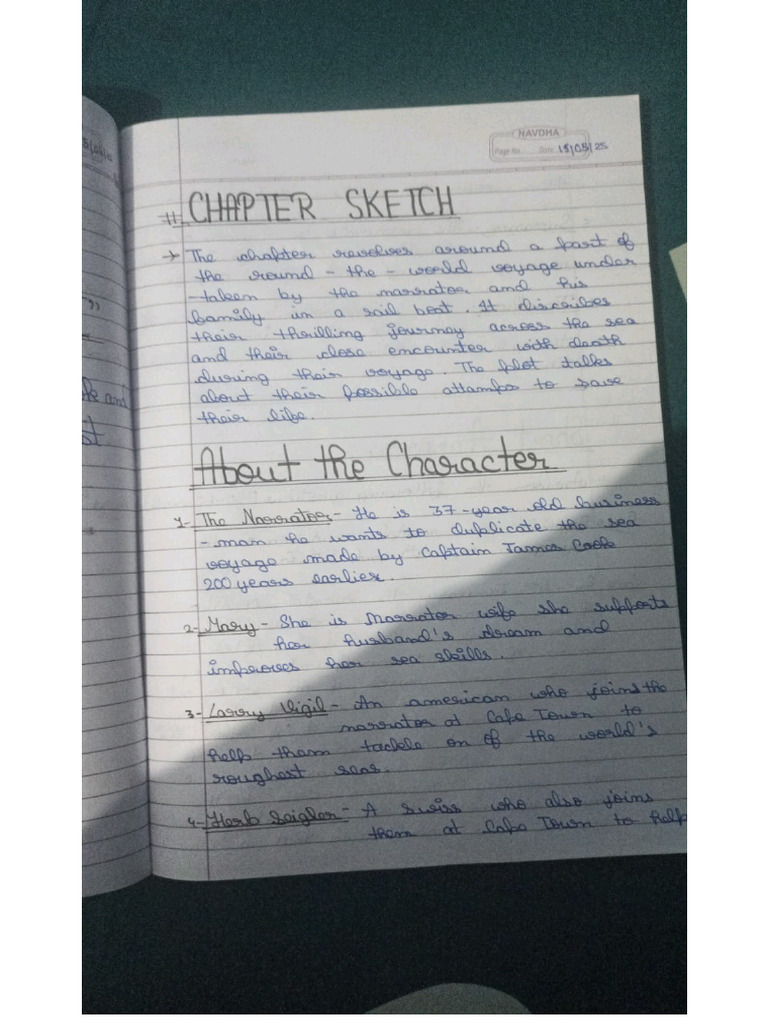 NAVDHA
Page No. Date 15/05/25
# CHAPTER SKETCH
→ The chapter revolves around a part of
the round - the - world voyage under
-taken by the narrator and his
family in a sail boat. It discribes
their thrilling journey across the sea
and their close encounter with death
during their voyage. The plot talks
about their possible attamps to save
their life.
About the Character
1- The Narrator - He is 37-year old business
-man he wants to duplicate the sea
voyage made by Captain James Cook
200 years earlier.
2- Mary - She is Narrator wife she supports
her husband's dream and
improves her sea skills.
3- Larry Vigil - An american who joins the
narrator at Cape Town to
help them tackle on of the world's
roughest seas.
4- Herb Seigler - A swiss who also joins
them at Cape Town to help